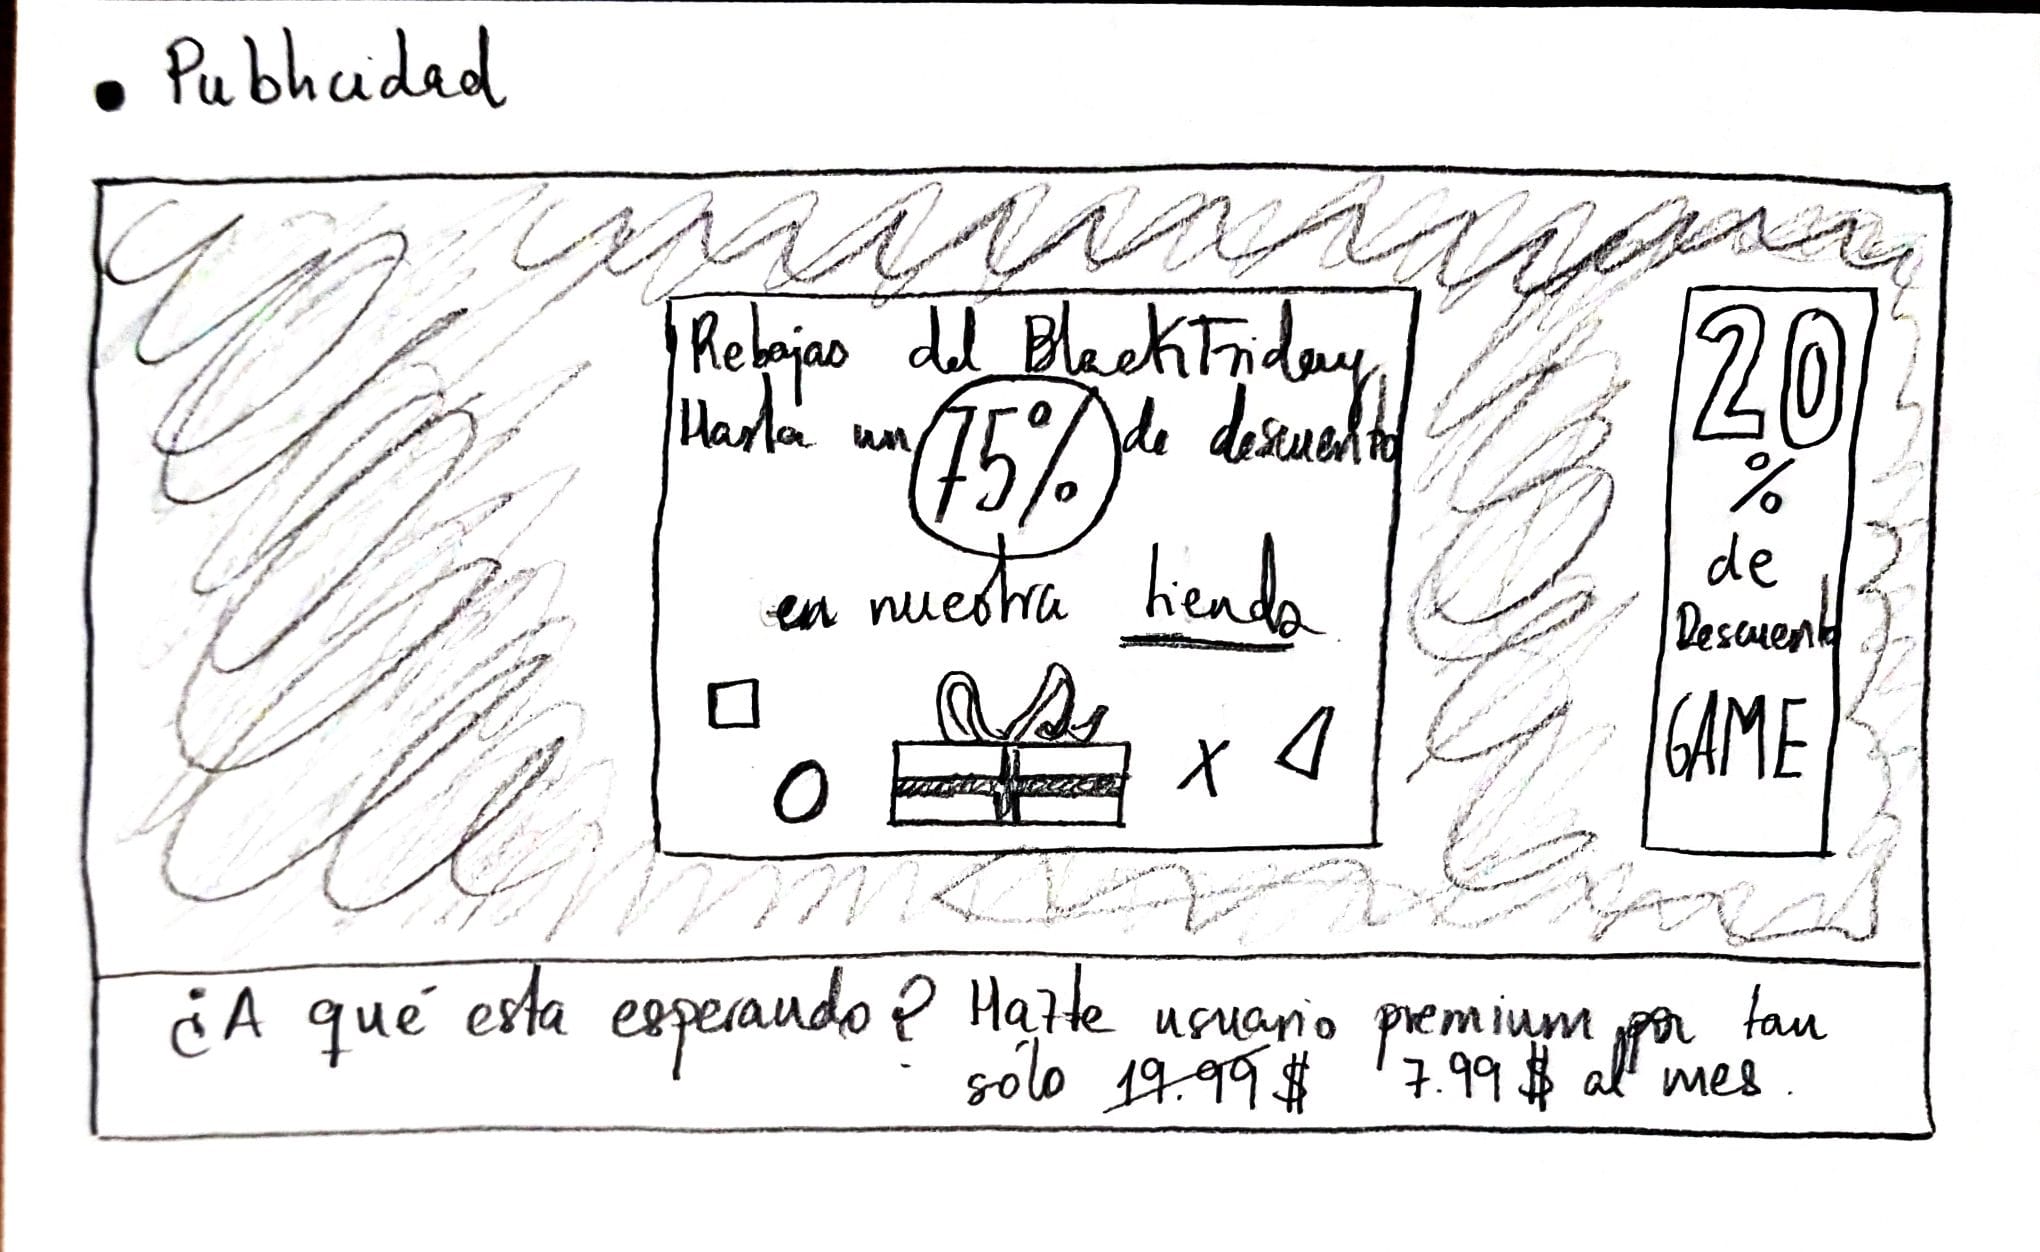 • Publicidad
Rebajas del BlackFriday
Hasta un 75% de descuento
en nuestra tienda
20
%
de
Descuento
GAME
¿A qué esta esperando? Hazte usuario premium por tan
sólo 19.99$ 7.99$ al mes.